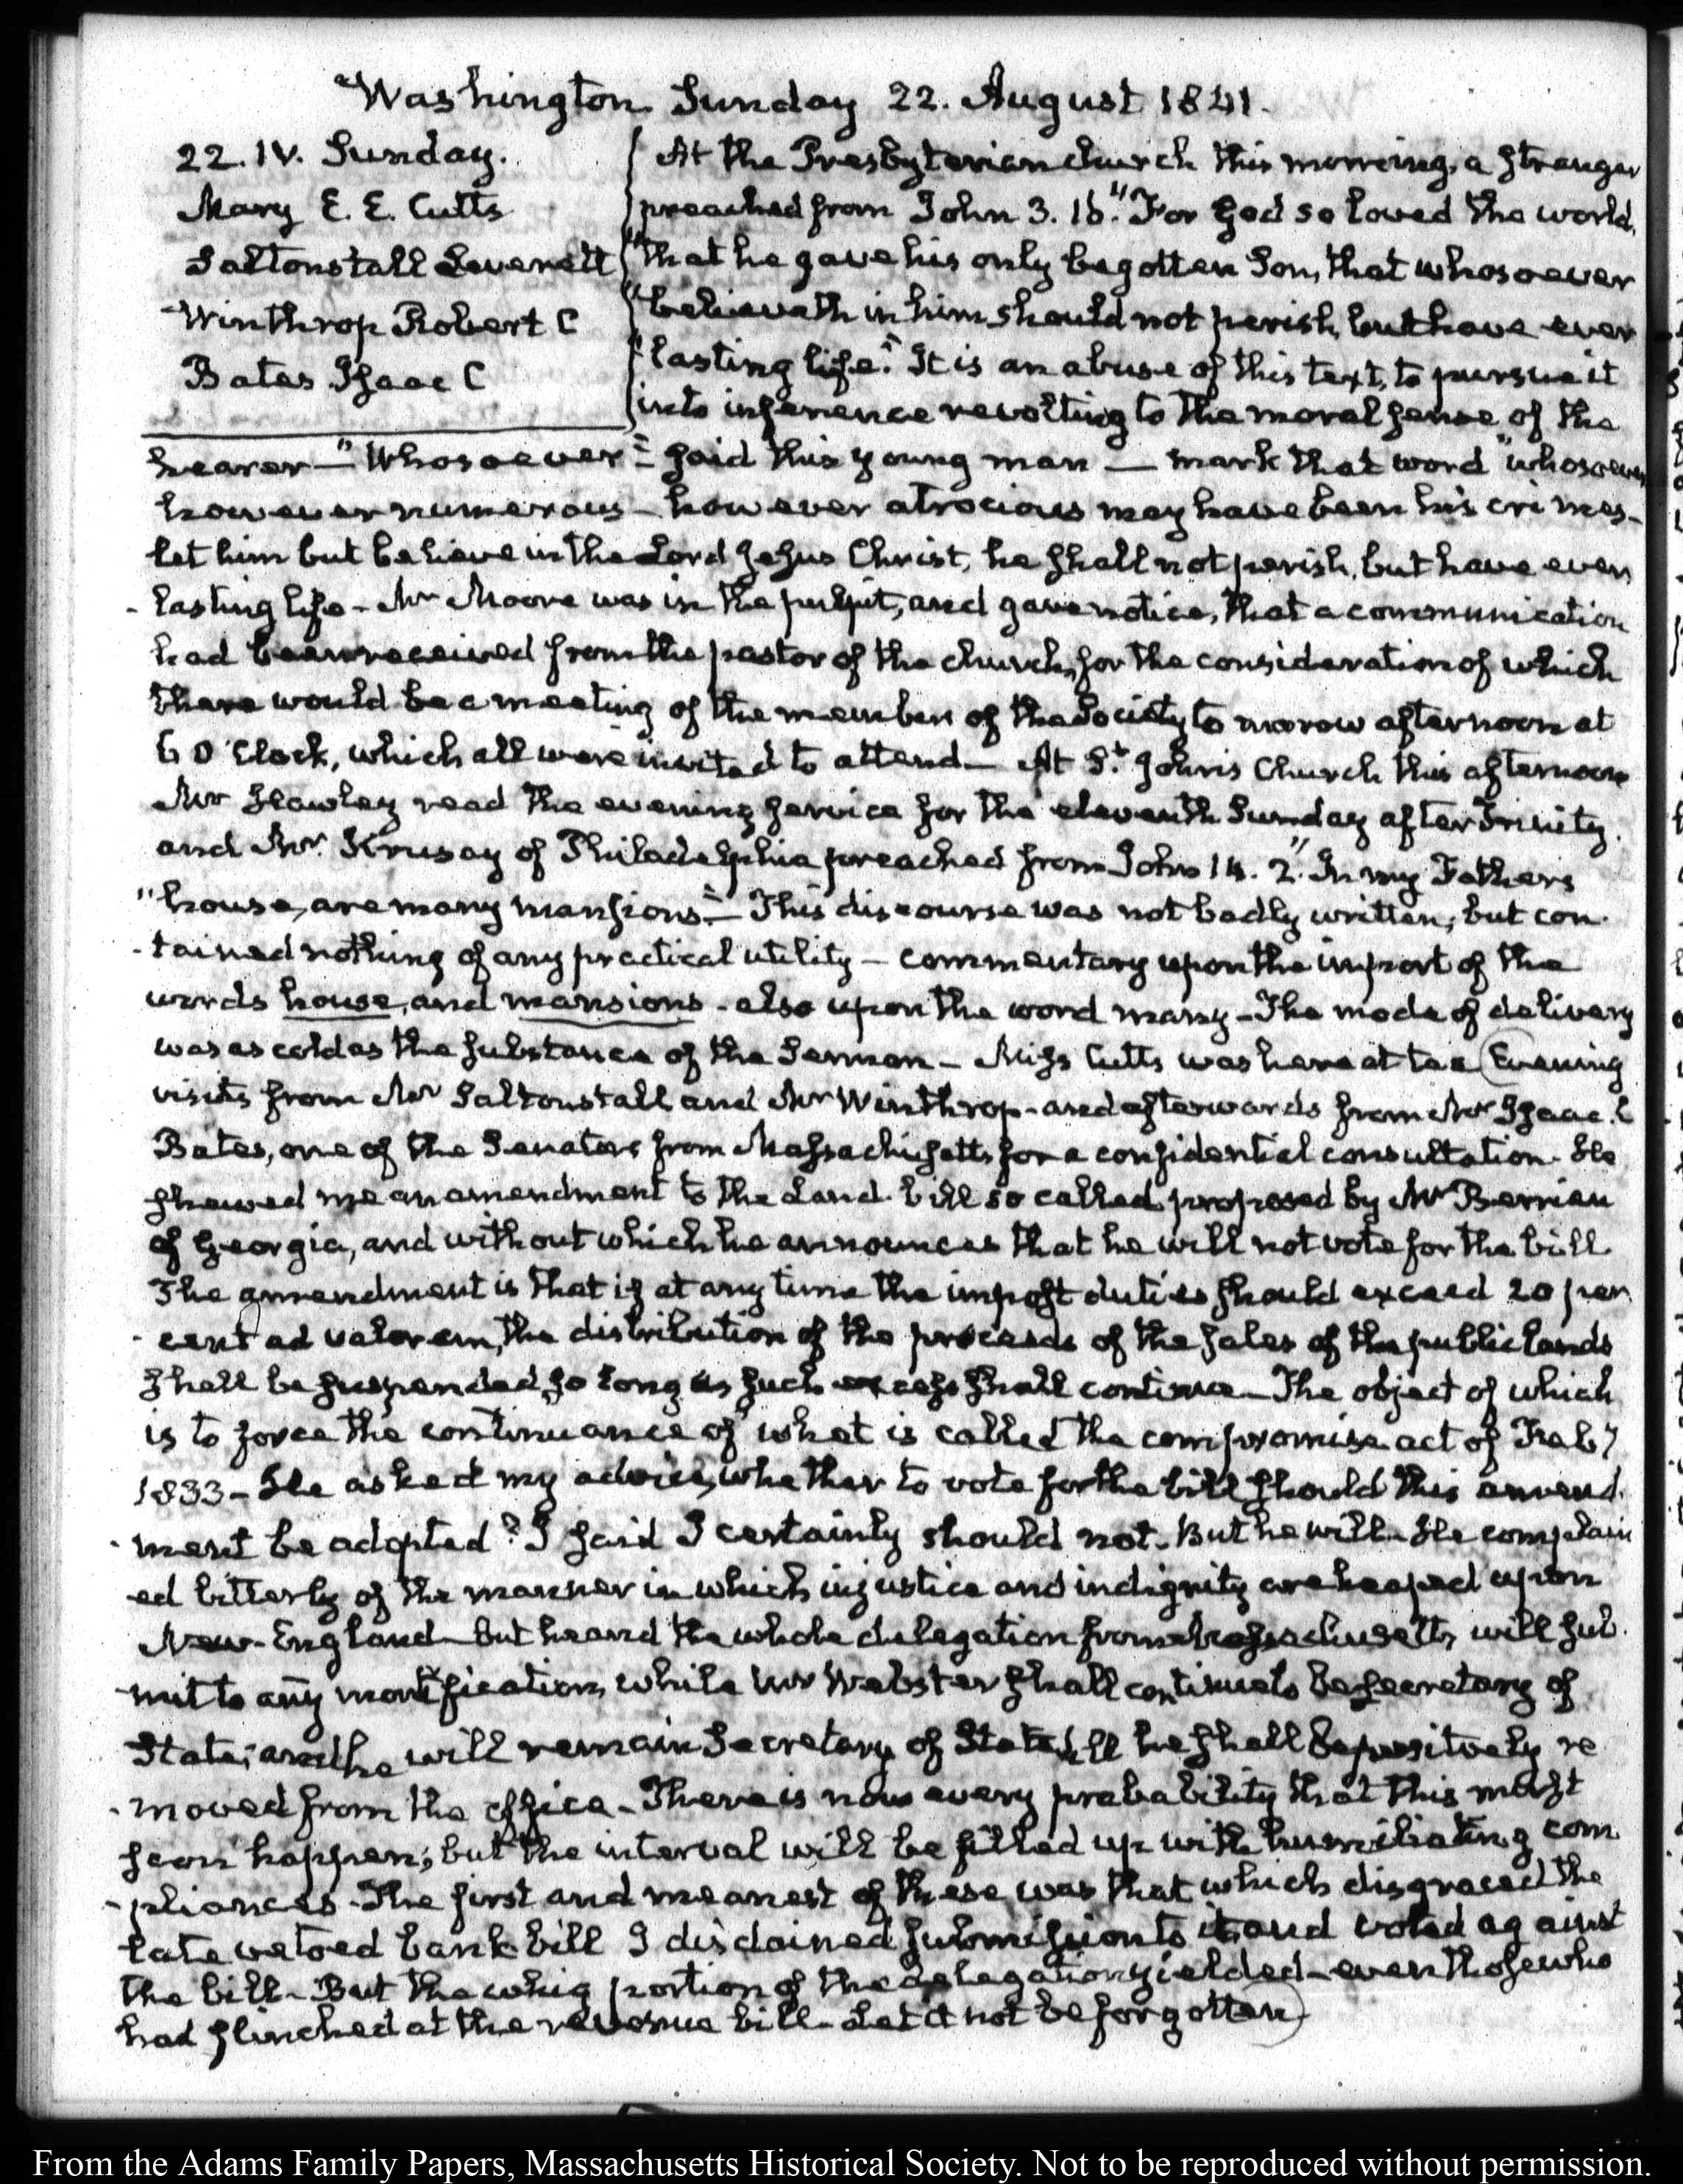 Washington Sunday 22. August 1841.
22. IV. Sunday.
Mary E. E. Cutts
Saltonstall Leverett
Winthrop Robert C
Bates Isaac C
At the Presbyterian church this morning, a stranger
preached from John 3. 16. "For God so loved the world,
"that he gave his only begotten Son, that whosoever
"believeth in him should not perish, but have ever
"lasting life." It is an abuse of this text, to pursue it
into inference revolting to the moral sense of the
hearer — "Whosoever" said this young man — mark that word "whosoever
however numerous — however atrocious may have been his crimes-
let him but believe in the Lord Jesus Christ, he shall not perish, but have ever
-lasting life - Mr Moore was in the pulpit, and gave notice, that a communication
had been received from the pastor of the church, for the consideration of which
there would be a meeting of the members of the Society to morrow afternoon at
6 O'Clock, which all were invited to attend — At St. John's Church this afternoon
Mr Hawley read the evening service for the eleventh Sunday after Trinity.
and Mr. of Philadelphia preached from John 14. 2. "In my Father's
"house, are many mansions." — This discourse was not badly written, but con-
-tained nothing of any practical utility — commentary upon the import of the
words house, and mansions - also upon the word many - The mode of delivery
was as cold as the substance of the Sermon - Miss Cutts was here at tea (Evening
visits from Mr Saltonstall and Mr Winthrop - and afterwards from Mr Isaac. C
Bates, one of the Senators from Massachusetts for a confidential consultation - He
shewed me an amendment to the Land-bill so called, proposed by Mr Berrien
of Georgia, and without which he announces that he will not vote for the bill
The amendment is that if at any time the impost duties should exceed 20 per
-cent ad valorem, the distribution of the proceeds of the sales of the public lands
shall be suspended, so long as such excess shall continue — The object of which
is to force the continuance of what is called the compromise act of Feby
1833 - He asked my advice, whether to vote for the bill should this amend-
-ment be adopted? I said I certainly should not - But he will - He complain
-ed bitterly of the manner in which injustice and indignity are heaped upon
New-England - but he and the whole delegation from Massachusetts, will sub-
-mit to any mortification, while Mr Webster shall continue to be Secretary of
State; and he will remain Secretary of State till he shall be positively re
-moved from the office - There is now every probability that this must
soon happen; but the interval will be filled up with humiliating com
-pliances - The first and meanest of these was that which disgraced the
late vetoed bank bill I disdained submission to it and voted against
the bill - But the whig portion of the delegation yielded - even those who
had flinched at the revenue bill - Let it not be forgotten)
From the Adams Family Papers, Massachusetts Historical Society. Not to be reproduced without permission.